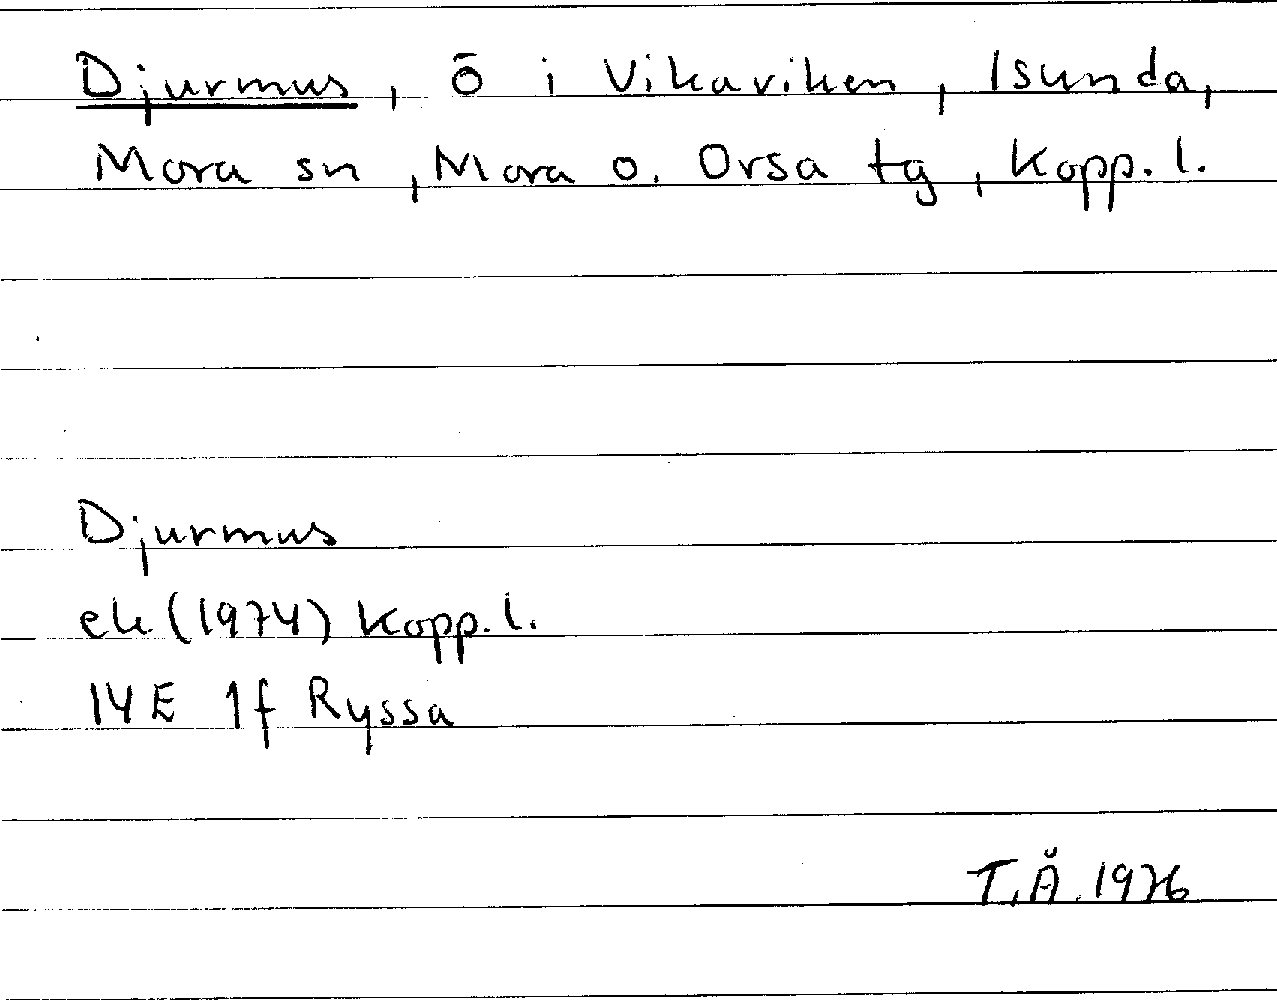 Djurmus, ö i Vikaviken, Isunda,
Mora sn, Mora o. Orsa tg, Kopp. l.
Djurmus
ek (1974) Kopp. l.
14E 1f Ryssa
T.Å. 1976